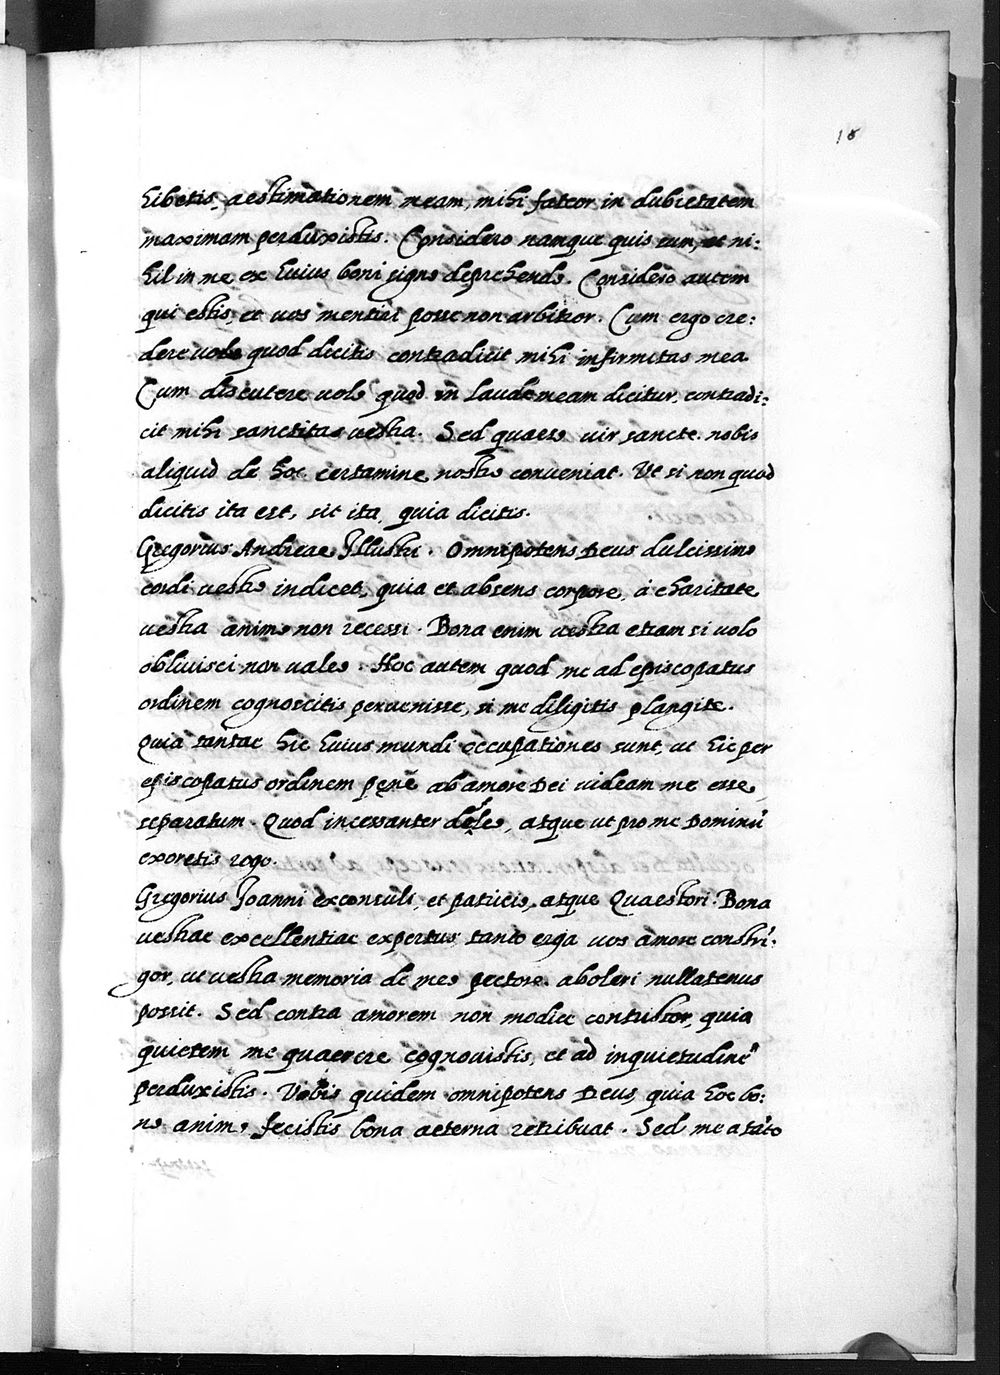 18
hibetis, aestimationem meam, mihi fateor in dubietatem
maximam perduxistis. Considero namque quis sum, et ni:
hil in me ex huius boni signo deprehendo. Considero autem
qui estis, et vos mentiri posse non arbitror. Cum ergo cre:
dere volo quod dicitis contradicit mihi infirmitas mea
Cum discutere volo quod in laude meam dicitur, contradi:
cit mihi sanctitas vestra. Sed quaeso vir sancte nobis
aliquid de hoc certamine nostro conveniat. Ut si non quod
dicitis ita est, sit ita, quia dicitis.
Gregorius Andreae Illustri. Omnipotens Deus dulcissimo
cordi vestro indicet, quia et absens corpore, à charitate
vestra animo non recessi. Bona enim vestra etiam si volo
oblivisci non valeo. Hoc autem quod me ad episcopatus
ordinem cognoscitis pervenisse, si me diligitis plangite.
Quia tantae hic huius mundi occupationes sunt, ut hic per
episcopatus ordinem penè ab amore Dei videam me esse
separatum. Quod incessanter defleo, atque ut pro me Dominū
exoretis rogo.
Gregorius Joanni exconsuli, et patricio, atque Quaestori. Bona
vestrae excellentiae expertus tanto erga vos amore constrī:
gor, ut vestra memoria de meo pectore aboleri nullatenus
possit. Sed contra amorem non modice contristor, quia
quietem me quaerere cognovistis, et ad inquietudinē
perduxistis. Vobis quidem omnipotens Deus, quia hoc bo:
no animo fecistis bona aeterna retribuat. Sed me a tāto